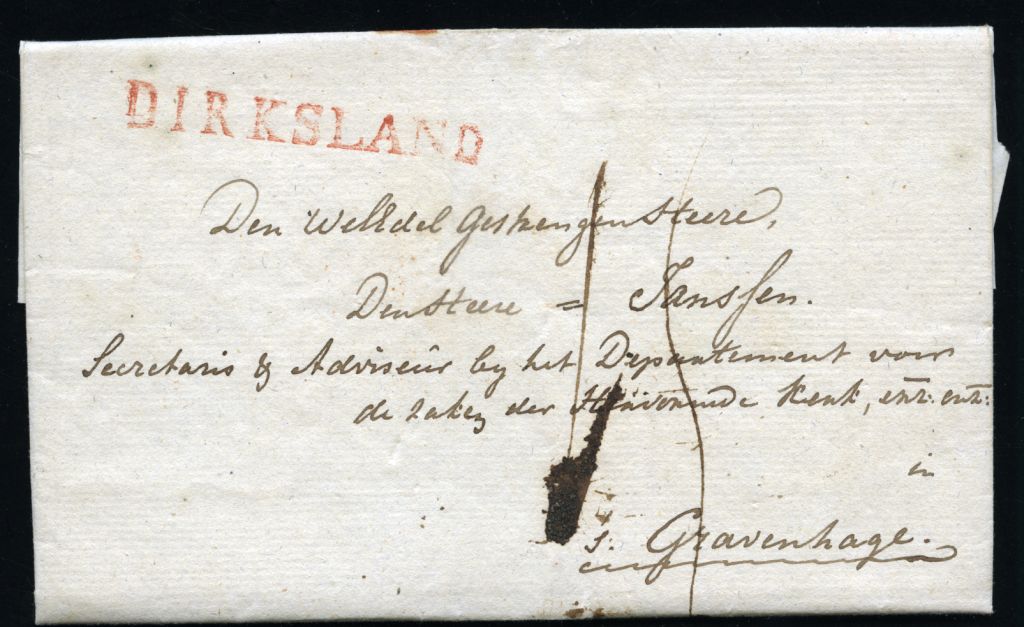 DIRKSLAND
Den WelEdel Gestrengen Heere,
Den Heere = Janssen.
Secretaris & Adviseur by het Departement voor
de zaken der Hervormde Kerk, enz: enz:
in
s. Gravenhage.